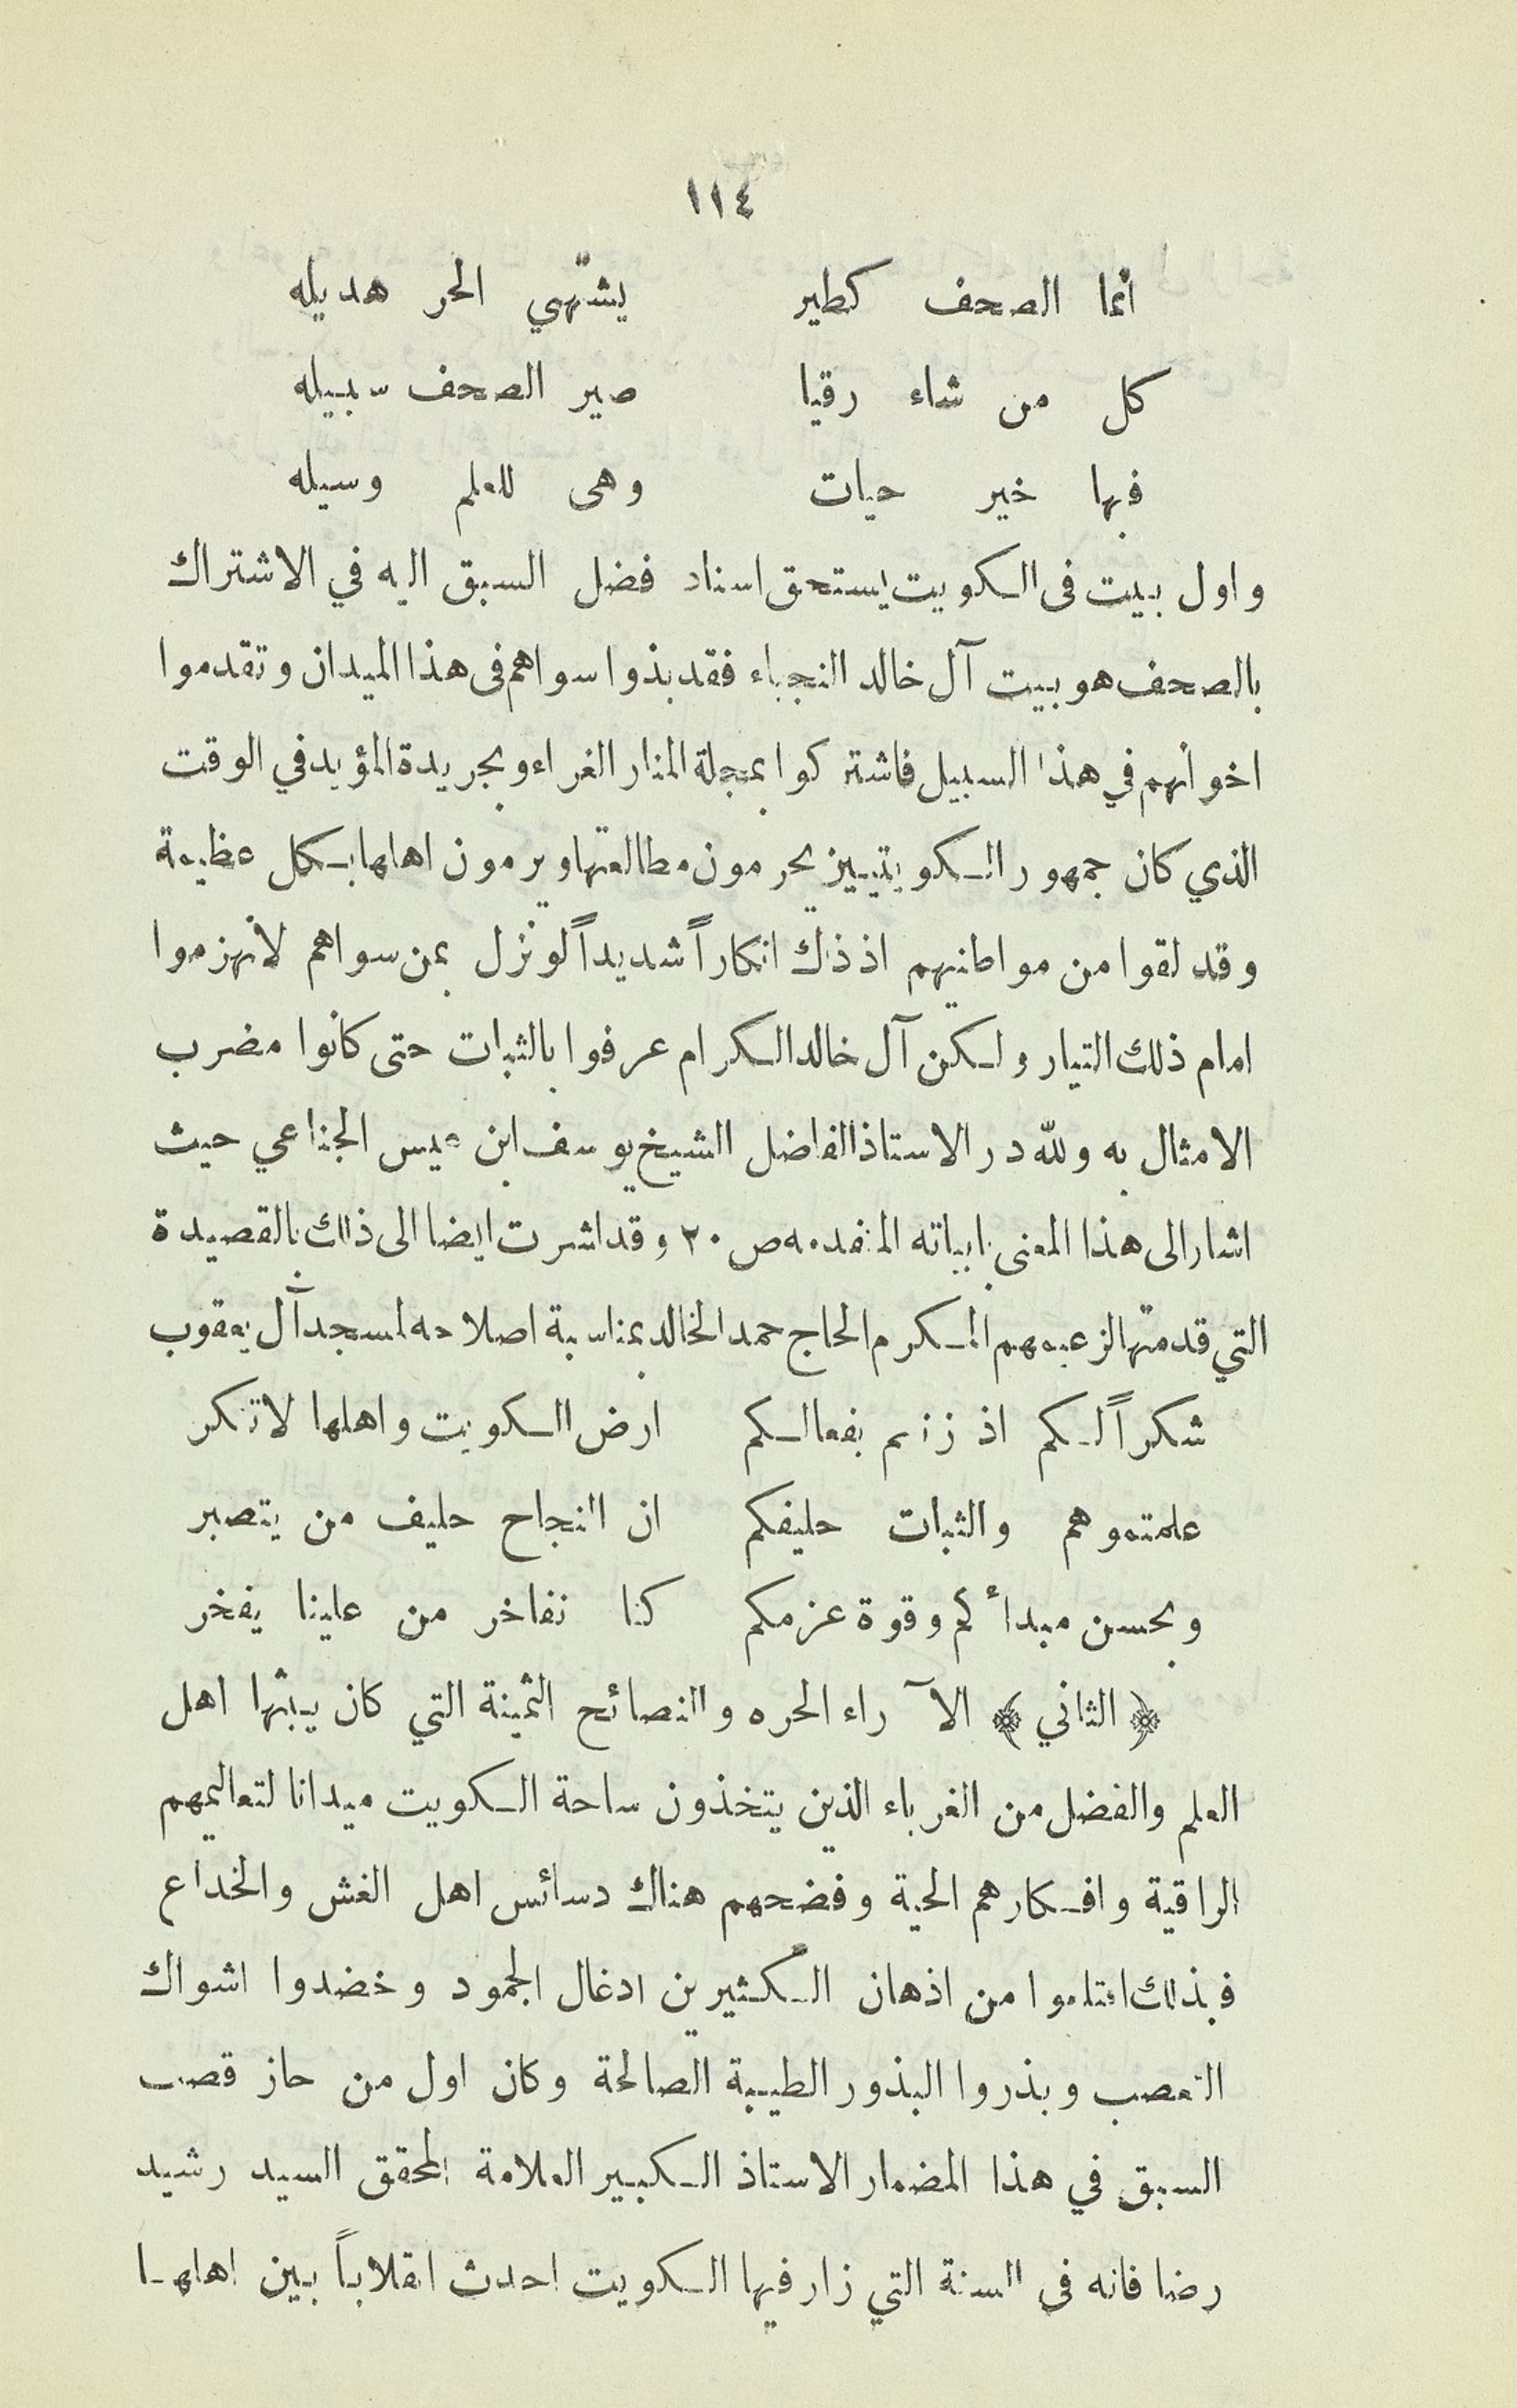 ١١٤
أنما الصحف كطير يشتهي الحر هديله
كل من شاء رقيا صير الصحف سبيله
فبها خير حيات وهى للعلم وسيله
واول بيت فى الكويت يستحق اسناد فضل السبق اليه في الاشتراك
بالصحف هو بيت آل خالد النجباء فقد بذوا سواهم فى هذا الميدان وتقدموا
اخوانهم في هذا السبيل فاشتركوا بمجلة المنار الغراء وبجريدة المؤيد في الوقت
الذي كان جمهور الكويتيين يحرمون مطالعتها ويرمون اهلها بكل عظيمة
وقد لقوا من مواطنيهم اذ ذاك انكاراً شديداً لو نزل بمن سواهم لأنهزموا
امام ذلك التيار ولكن آل خالد الكرام عرفوا بالثبات حتى كانوا مضرب
الامثال به ولله در الاستاذ الفاضل الشيخ يوسف ابن عيس الجناعي حيث
اشار الى هذا المعنى بابياته المتقدمه ص ٢٠ وقد اشرت ايضا الى ذلك بالقصيدة
التي قدمتها لزعيمهم المكرم الحاج حمد الخالد بمناسبة اصلاحه لمسجد آل يعقوب
شكراً لكم اذ زنتم بفعالكم ارض الكويت واهلها لا تنكر
علمتموهم والثبات حليفكم ان النجاح حليف من يتصبر
وبحسن مبدأكم وقوة عزمكم كنا نفاخر من علينا يفخر
﴿ الثاني ﴾ الآراء الحره والنصائح الثمينة التي كان يبثها اهل
العلم والفضل من الغرباء الذين يتخذون ساحة الكويت ميدانا لتعاليمهم
الراقية وافكارهم الحية وفضحهم هناك دسائس اهل الغش والخداع
فبذلك اقتلعوا من اذهان الكثيرين ادغال الجمود وخضدوا اشواك
التعصب وبذروا البذور الطيبة الصالحة وكان اول من حاز قصب
السبق في هذا المضمار الاستاذ الكبير العلامة المحقق السيد رشيد
رضا فانه فى السنة التي زار فيها الكويت احدث انقلاباً بين اهلها